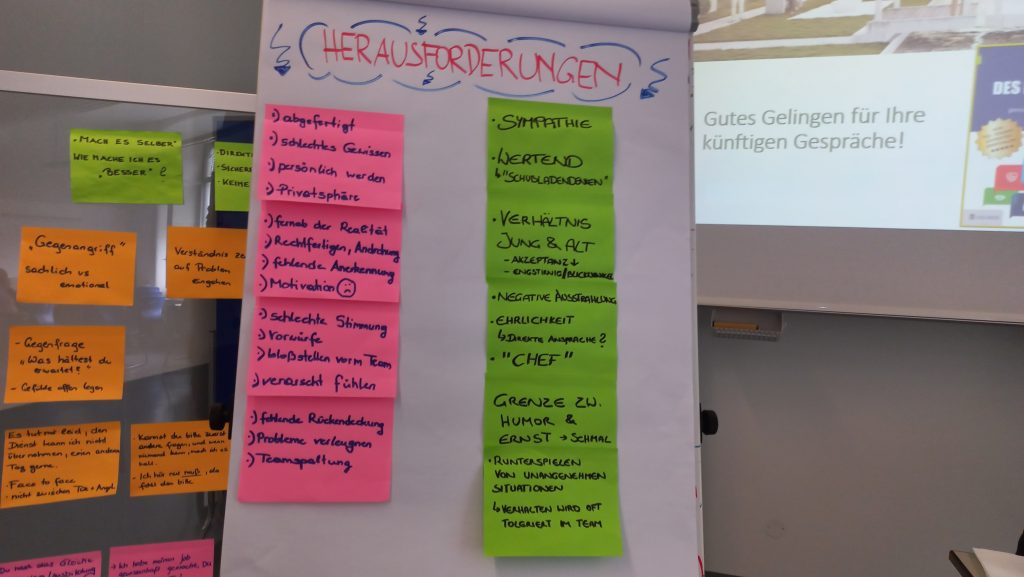 HERAUSFORDERUNGEN
·) abgefertigt
·) schlechtes Gewissen
·) persönlich werden
·) Privatsphäre
·) fernab der Realität
·) Rechtfertigen, Androhung
·) fehlende Anerkennung
·) Motivation ☹
·) schlechte Stimmung
·) Vorwürfe
·) bloßstellen vorm Team
·) verarscht fühlen
·) fehlende Rückendeckung
·) Probleme verleugnen
·) Teamspaltung
· SYMPATHIE
· WERTEND
↳ "SCHUBLADENDENKEN"
· VERHÄLTNIS
JUNG & ALT
- AKZEPTANZ ↓
- ENGSTIRNIG/BLICKWINKEL
· NEGATIVE AUSSTRAHLUNG
· EHRLICHKEIT
↳ DIREKTE ANSPRACHE?
· "CHEF"
GRENZE ZW.
HUMOR &
ERNST → SCHMAL
· RUNTERSPIELEN
VON UNANGENEHMEN
SITUATIONEN
↳ VERHALTEN WIRD OFT
TOLERIERT IM TEAM
· "MACH ES SELBER"
WIE MACHE ICH ES
"BESSER"?
- DIREKT
- SICHER
- KEINE
"Gegenangriff"
sachlich vs
emotional
Verständnis ze
auf Problem
eingehen
- Gegenfrage
"Was hältest du
erwartet?"
- Gefühle offen legen
Es tut mir leid, den
Dienst kann ich nicht
übernehmen, einen anderen
Tag gerne.
· Face to face
- nicht zwischen Tür + Angel
· Kannst du bitte zuerst
andere fragen, und wenn
niemand kann, mach ich es
- Ich hör nur muß, da
fehlt das bitte
Du hast das Gleiche
→ Ich habe meinen Job
gewissenhaft gemacht, Du
Gutes Gelingen für Ihre
künftigen Gespräche!
DES